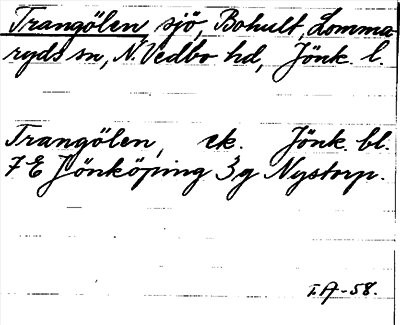 Trangölen, sjö, Bohult, Lomma-
ryds sn, N. Vedbo hd, Jönk. l.
Trangölen, ek. Jönk. bl.
7E Jönköping 3g Nystorp.
I.A-58.